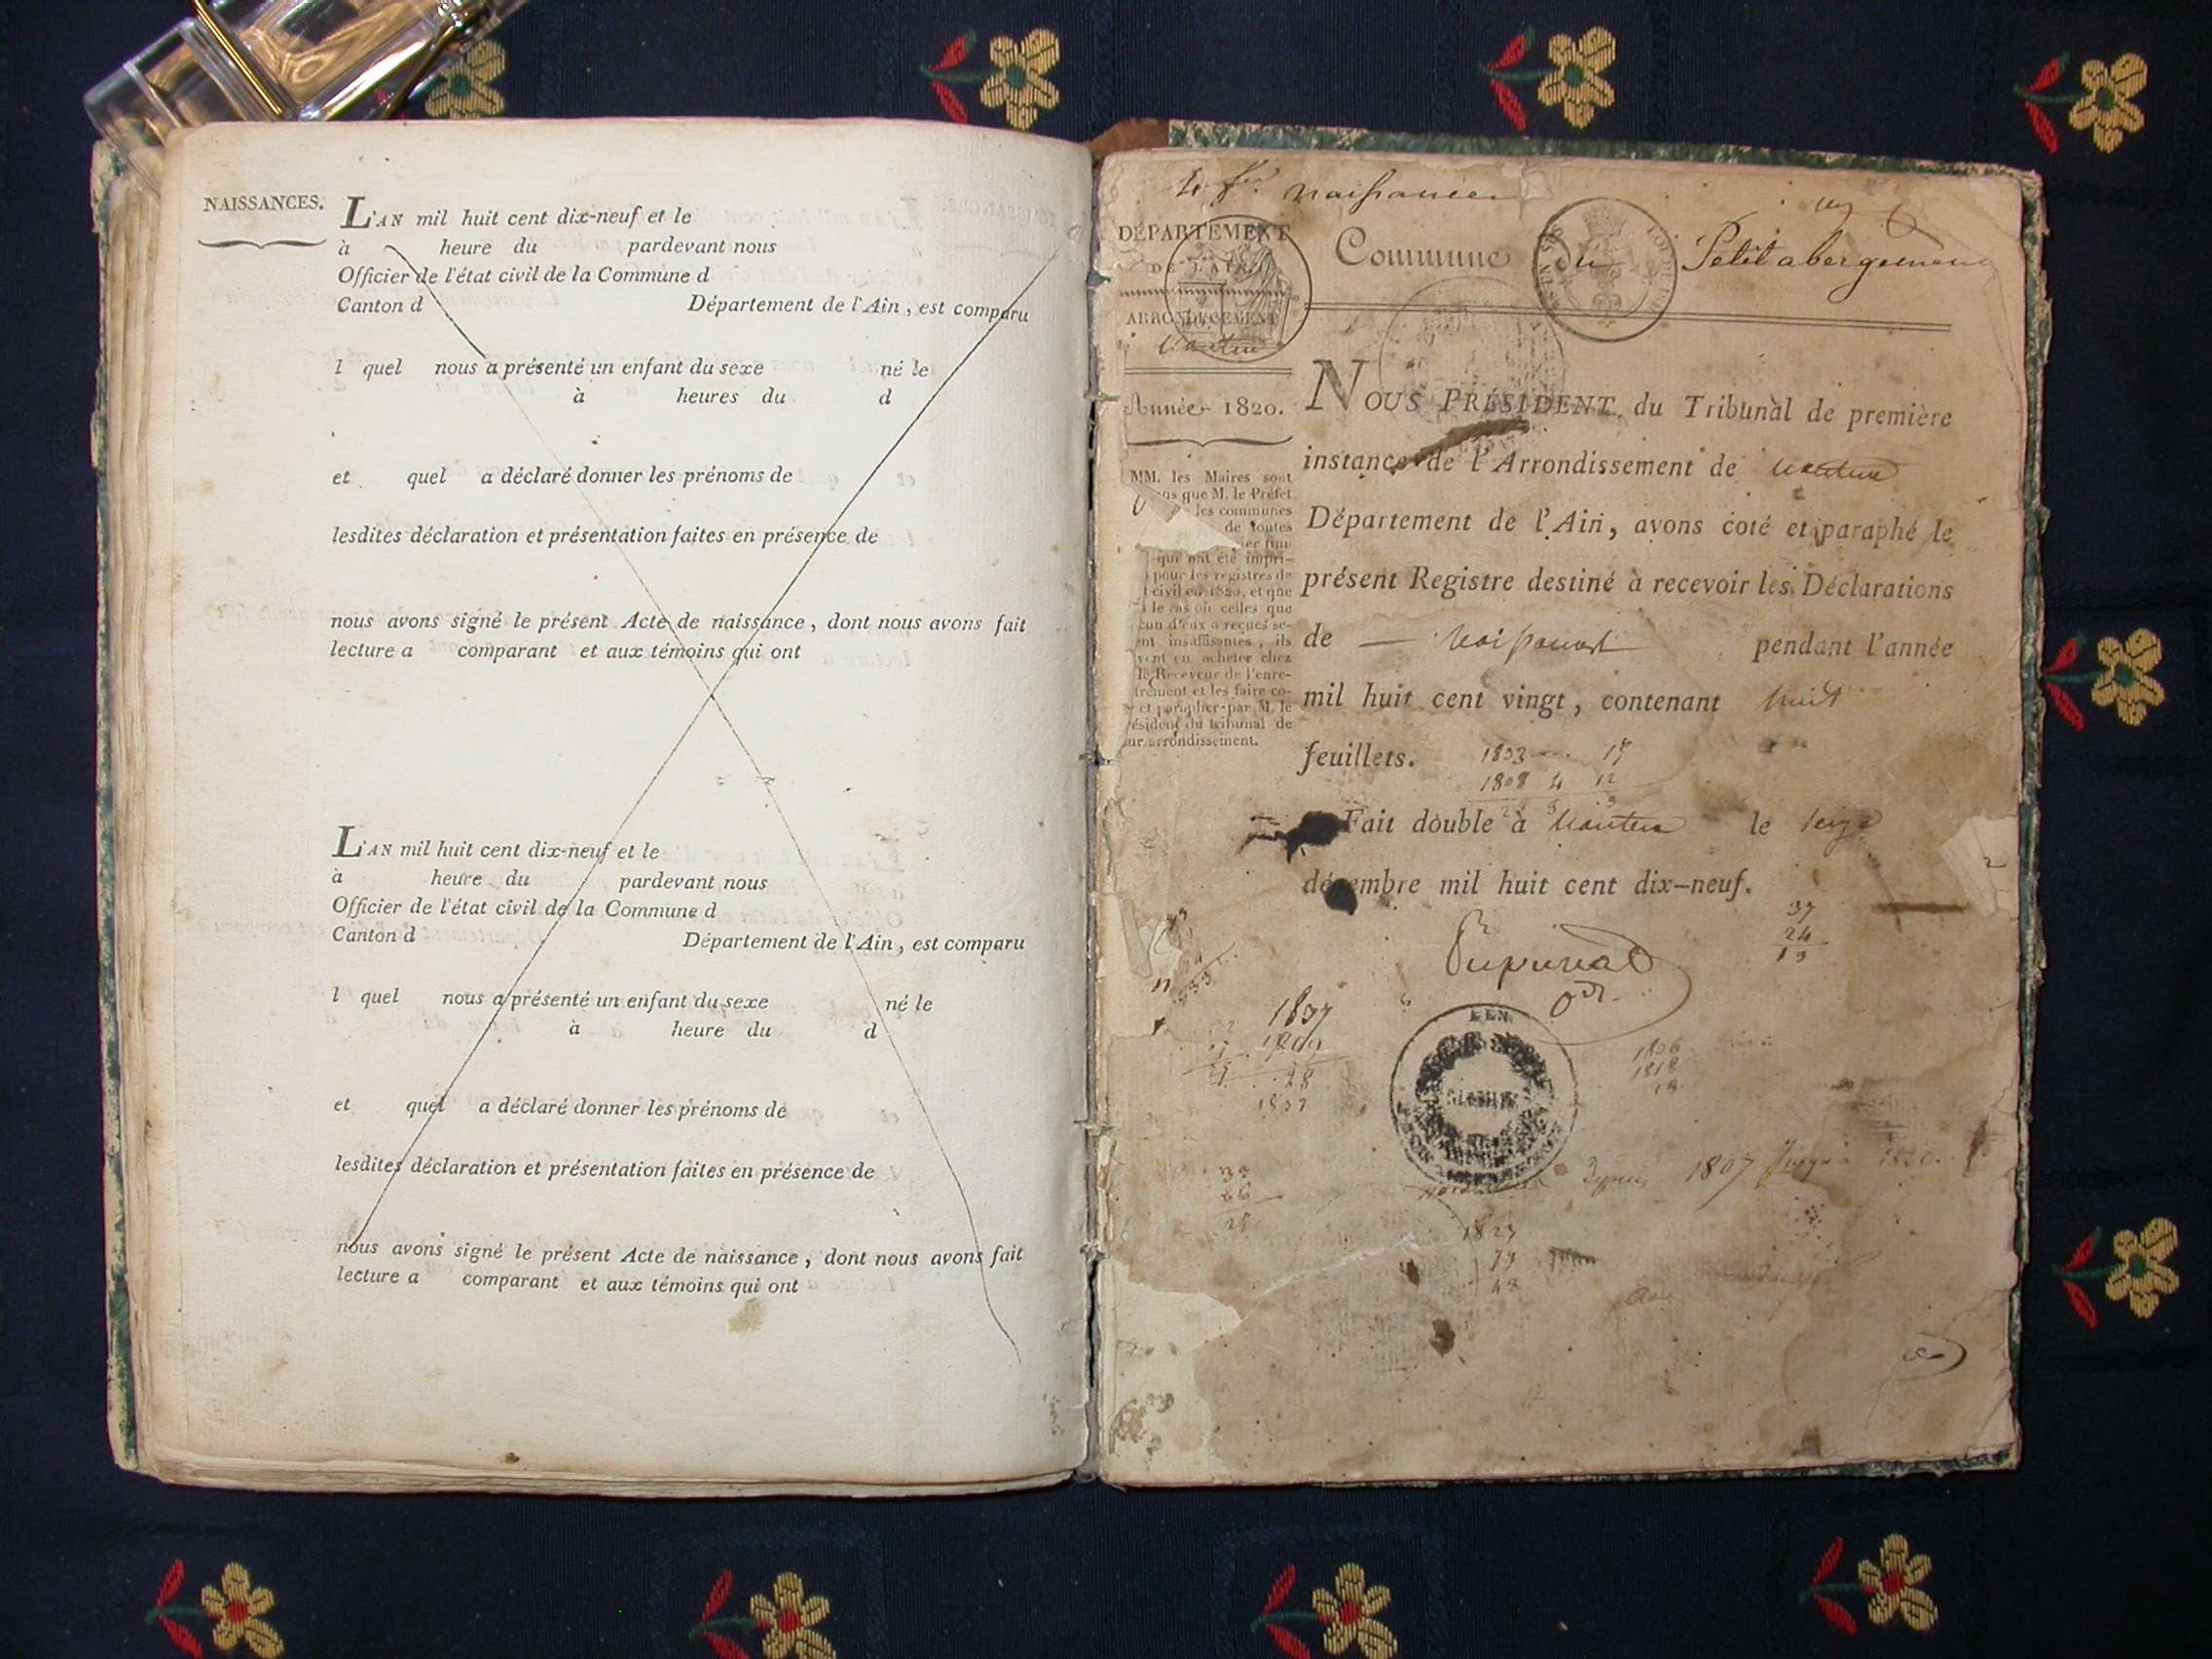 NAISSANCES.
L'AN mil huit cent dix-neuf et le
à heure du pardevant nous
Officier de l'état civil de la Commune d
Canton d Département de l'Ain, est comparu
l quel nous a présenté un enfant du sexe né le
à heures du d
et quel a déclaré donner les prénoms de
lesdites déclaration et présentation faites en présence de
nous avons signé le présent Acte de naissance, dont nous avons fait
lecture a comparant et aux témoins qui ont
L'AN mil huit cent dix-neuf et le
à heure du pardevant nous
Officier de l'état civil de la Commune d
Canton d Département de l'Ain, est comparu
l quel nous a présenté un enfant du sexe né le
à heure du d
et quel a déclaré donner les prénoms de
lesdites déclaration et présentation faites en présence de
nous avons signé le présent Acte de naissance, dont nous avons fait
lecture a comparant et aux témoins qui ont
naissances
DÉPARTEMENT
DE L'AIN
ARRONDISSEMENT
Nantua
Année 1820.
MM. les Maires sont
que M. le Préfet
les communes
de toutes
qui ont été impri-
pour les registres de
civil en 1820, et que
le cas où celles que
cun d'eux a reçues se-
ent insuffisantes, ils
vent en acheter chez
le Receveur de l'enre-
et les faire co-
et parapher par M. le
résident du tribunal de
ur arrondissement.
Commune du Petit abergement
NOUS PRÉSIDENT du Tribunal de première
instance de l'Arrondissement de Nantua
Département de l'Ain, avons coté et paraphé le
présent Registre destiné à recevoir les Déclarations
de naissance pendant l'année
mil huit cent vingt, contenant huit
feuillets.
1808 4 12
Fait double à Nantua le seize
décembre mil huit cent dix-neuf.
37
24
13
1837
1809
28
1837
1806
1818
depuis 1807 jusqu'à 1820.
1823